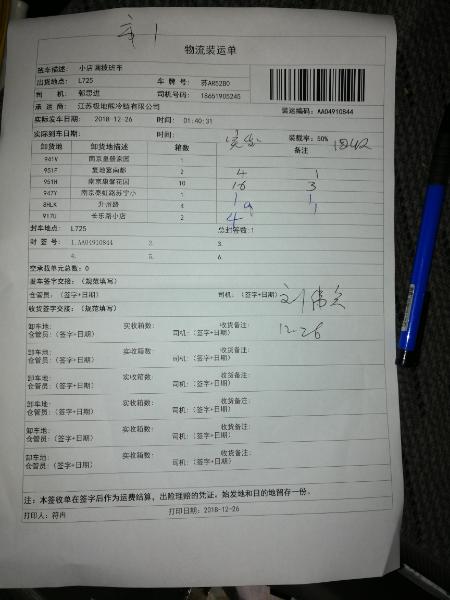 物流装运单
装车描述: 小店调拨班车
出货地点: L725 车牌号: 苏AR52B0
司机: 郭思进 司机号码: 18651905245
承运商: 江苏极地熊冷链有限公司 装运编码: AA04910844
实际发车日期: 2018-12-26 时间: 01:40:31
实际到车日期: 时间: 装载率: 50%
卸货地 卸货地描述 箱数 备注
941V 南京皇册家园 1
951F 复地宴南都 2 4 1
951H 南京康馨花园 10 16 3
947Y 1
8HLK 升州路 4 1
917U 长乐路小店 2 4
封车地点: L725 总封签数:1
封签号: 1.AA04910844 2. 3.
4. 5. 6.
空承载单元总数: 0
发车签字交接: (规范填写)
仓管员: (签字+日期) 司机: (签字+日期)
收货签字交接: (规范填写)
12-26
卸车地: 实收箱数: 收货备注:
仓管员: (签字+日期) 司机: (签字+日期)
卸车地: 实收箱数: 收货备注:
仓管员: (签字+日期) 司机: (签字+日期)
卸车地: 实收箱数: 收货备注:
仓管员: (签字+日期) 司机: (签字+日期)
卸车地: 实收箱数: 收货备注:
仓管员: (签字+日期) 司机: (签字+日期)
卸车地: 实收箱数: 收货备注:
仓管员: (签字+日期) 司机: (签字+日期)
卸车地: 实收箱数: 收货备注:
仓管员: (签字+日期) 司机: (签字+日期)
注: 本签收单在签字后作为运费结算, 出险理赔的凭证。始发地和目的地留存一份。
打印人: 符冉 打印日期: 2018-12-26